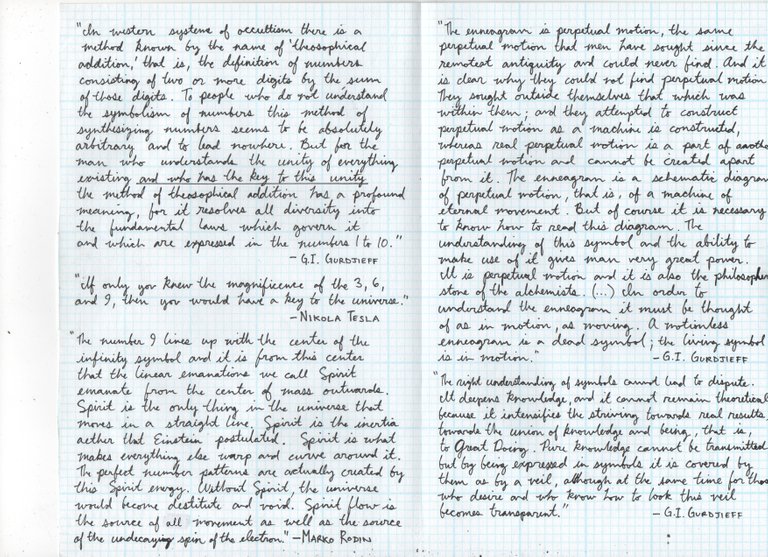 "In western systems of occultism there is a
method known by the name of 'theosophical
addition,' that is, the definition of numbers
consisting of two or more digits by the sum
of those digits. To people who do not understand
the symbolism of numbers this method of
synthesizing numbers seems to be absolutely
arbitrary and to lead nowhere. But for the
man who understands the unity of everything
existing and who has the key to this unity
the method of theosophical addition has a profound
meaning, for it resolves all diversity into
the fundamental laws which govern it
and which are expressed in the numbers 1 to 10."
– G.I. GURDJIEFF
"If only you knew the magnificence of the 3, 6,
and 9, then you would have a key to the universe."
– NIKOLA TESLA
"The number 9 lines up with the center of the
infinity symbol and it is from this center
that the linear emanations we call Spirit
emanate from the center of mass outwards.
Spirit is the only thing in the universe that
moves in a straight line. Spirit is the inertia
aether that Einstein postulated. Spirit is what
makes everything else warp and curve around it.
The perfect number patterns are actually created by
this Spirit energy. Without Spirit, the universe
would become destitute and void. Spirit flow is
the source of all movement as well as the source
of the undecaying spin of the electron." – MARKO RODIN
"The enneagram is perpetual motion, the same
perpetual motion that men have sought since the
remotest antiquity and could never find. And it
is clear why they could not find perpetual motion.
They sought outside themselves that which was
within them; and they attempted to construct
perpetual motion as a machine is constructed,
whereas real perpetual motion is a part of another
perpetual motion and cannot be created apart
from it. The enneagram is a schematic diagram
of perpetual motion, that is, of a machine of
eternal movement. But of course it is necessary
to know how to read this diagram. The
understanding of this symbol and the ability to
make use of it gives man very great power.
It is perpetual motion and it is also the philosopher
stone of the alchemists. (...) In order to
understand the enneagram it must be thought
of as in motion, as moving. A motionless
enneagram is a dead symbol; the living symbol
is in motion." – G.I. GURDJIEFF
"The right understanding of symbols cannot lead to dispute.
It deepens knowledge, and it cannot remain theoretical
because it intensifies the striving towards real results,
towards the union of knowledge and being, that is,
to Great Doing. Pure knowledge cannot be transmitted
but by being expressed in symbols it is covered by
them as by a veil, although at the same time for those
who desire and who know how to look this veil
becomes transparent." – G.I. GURDJIEFF